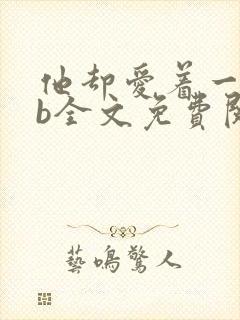 他却愛着一
b全文免費閱
藝鳴驚人